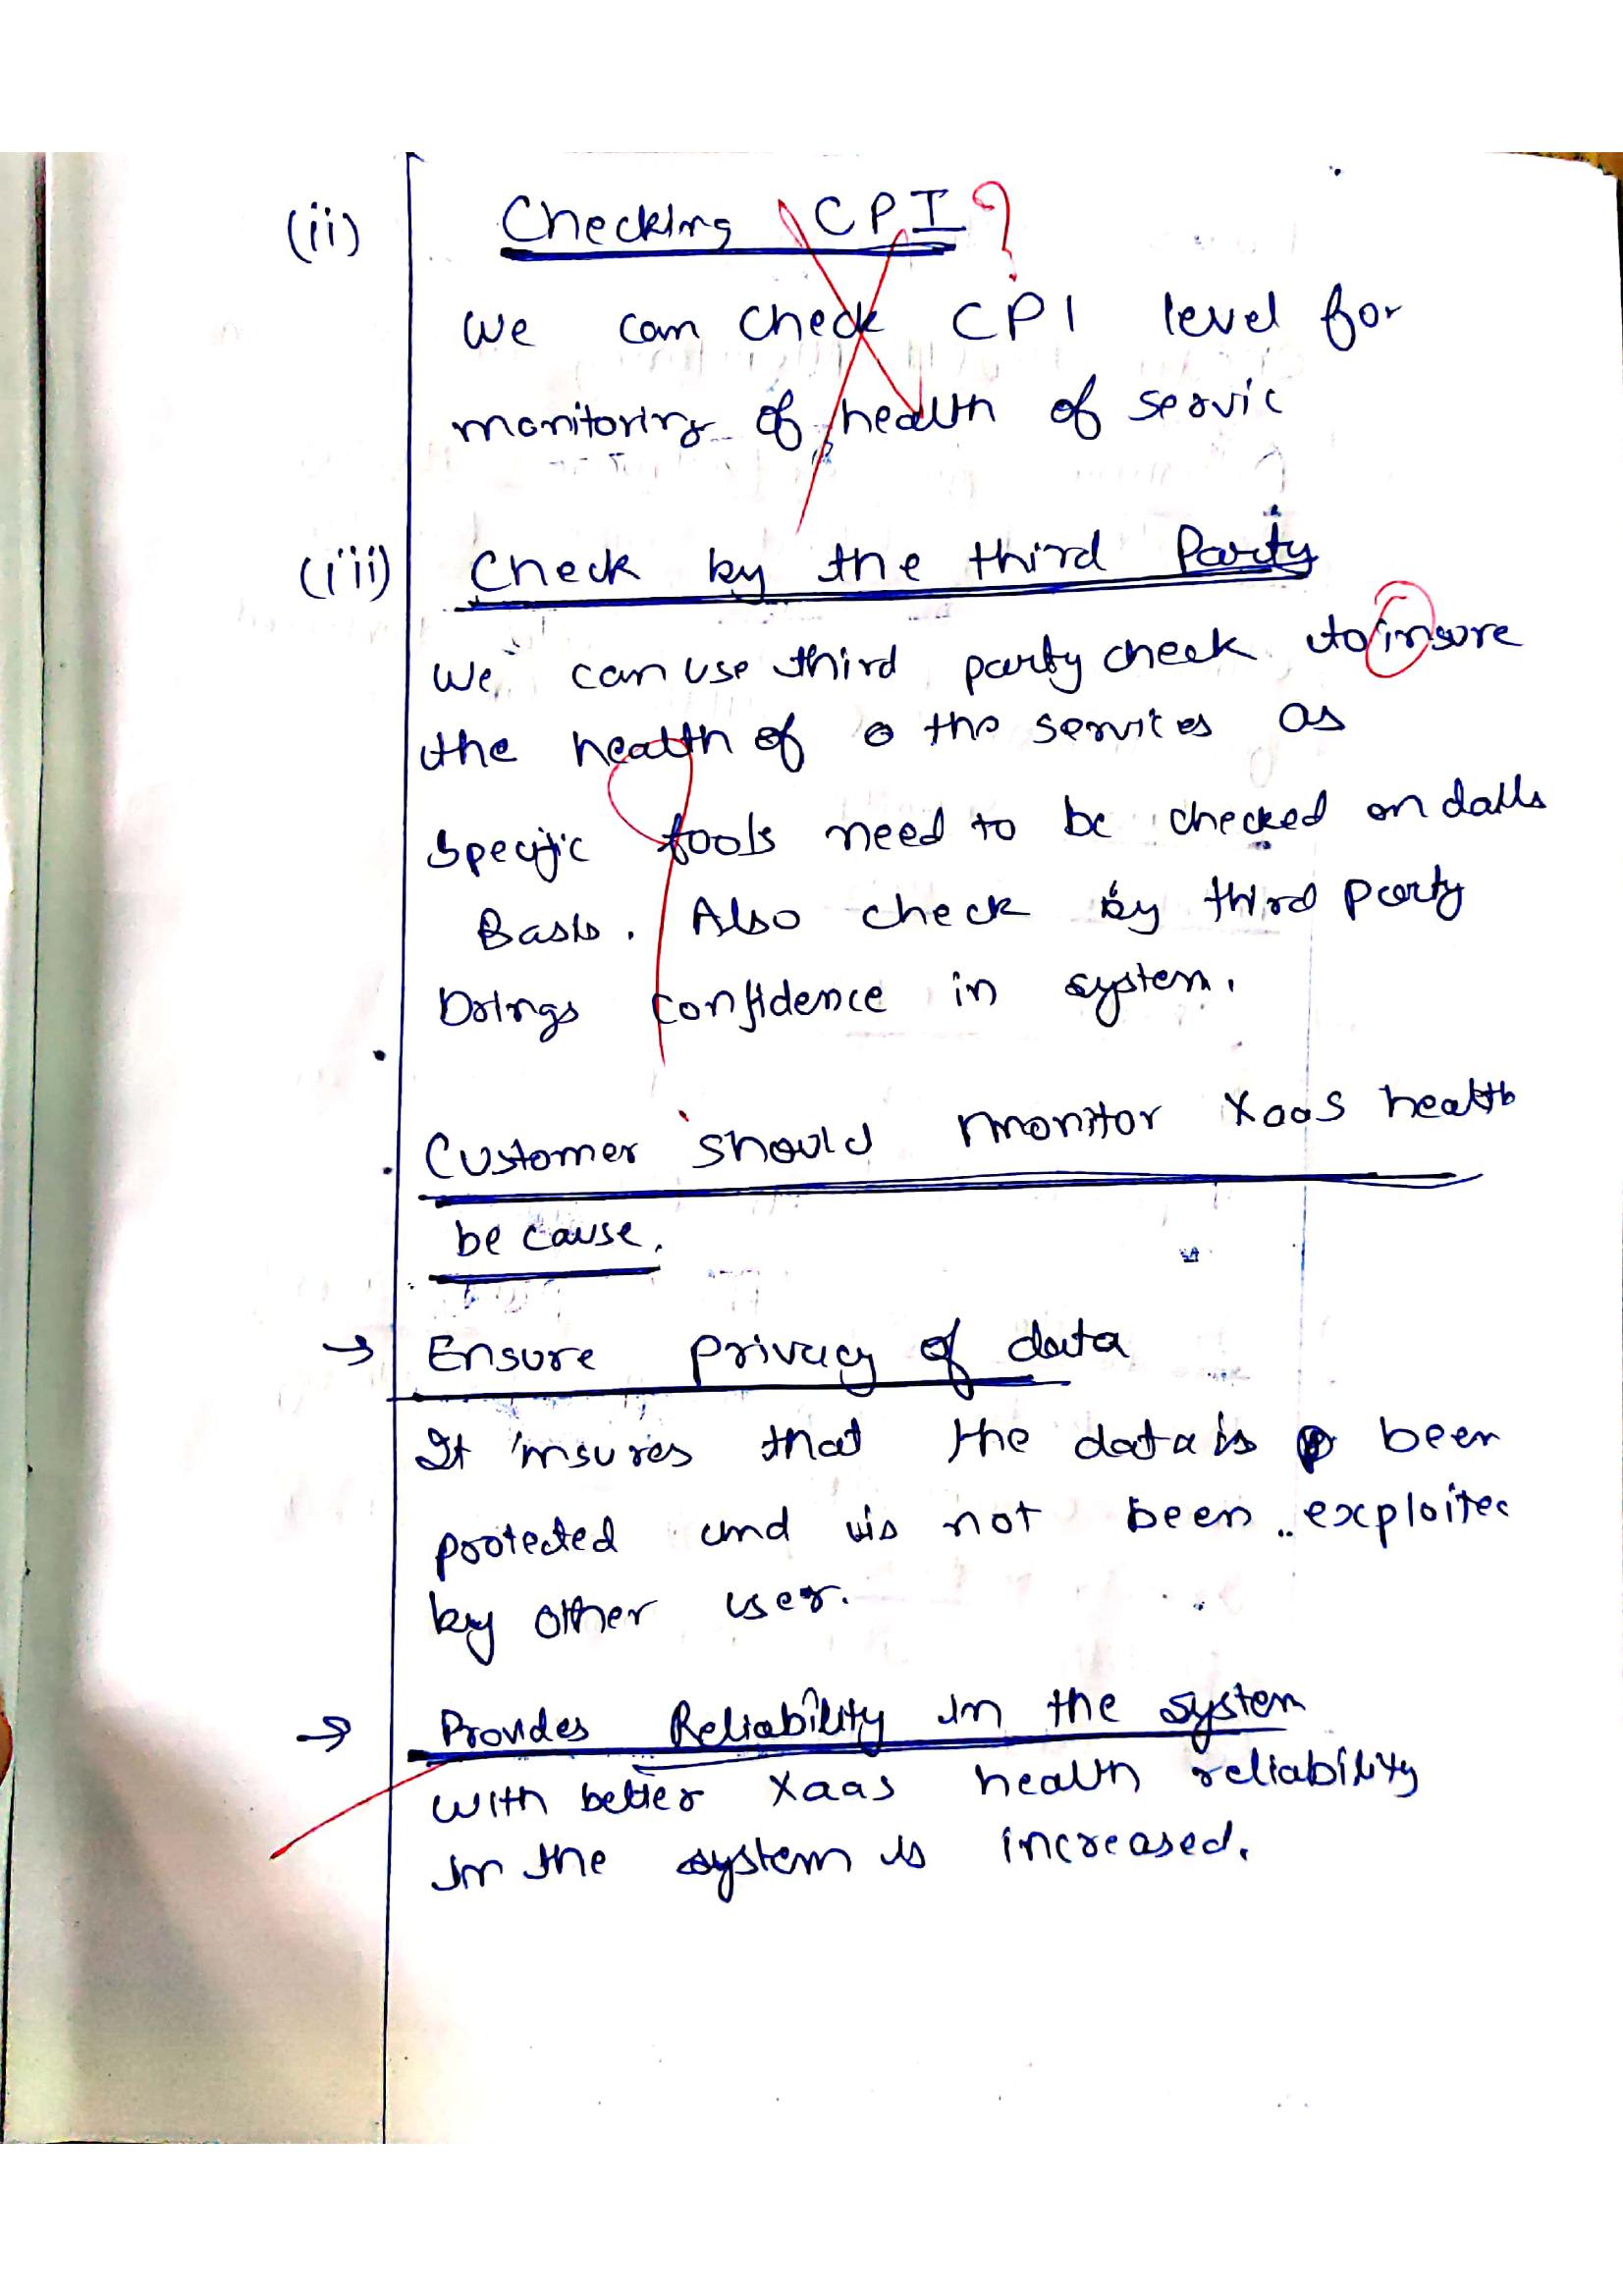 (ii) Checking CPI ?
We can check CPI level for
monitoring of health of servic
(iii) Check by the third Party
We can use third party check to insure
the health of the services as
specific tools need to be checked on
Basis. Also check by third party
Brings confidence in system.
Customer should monitor Xaas health
be cause.
→ Ensure privacy of data
It insures that the data is been
protected and is not been exploited
by other user.
→ Provides Reliability in the system
with better Xaas health reliability
in the system is increased.